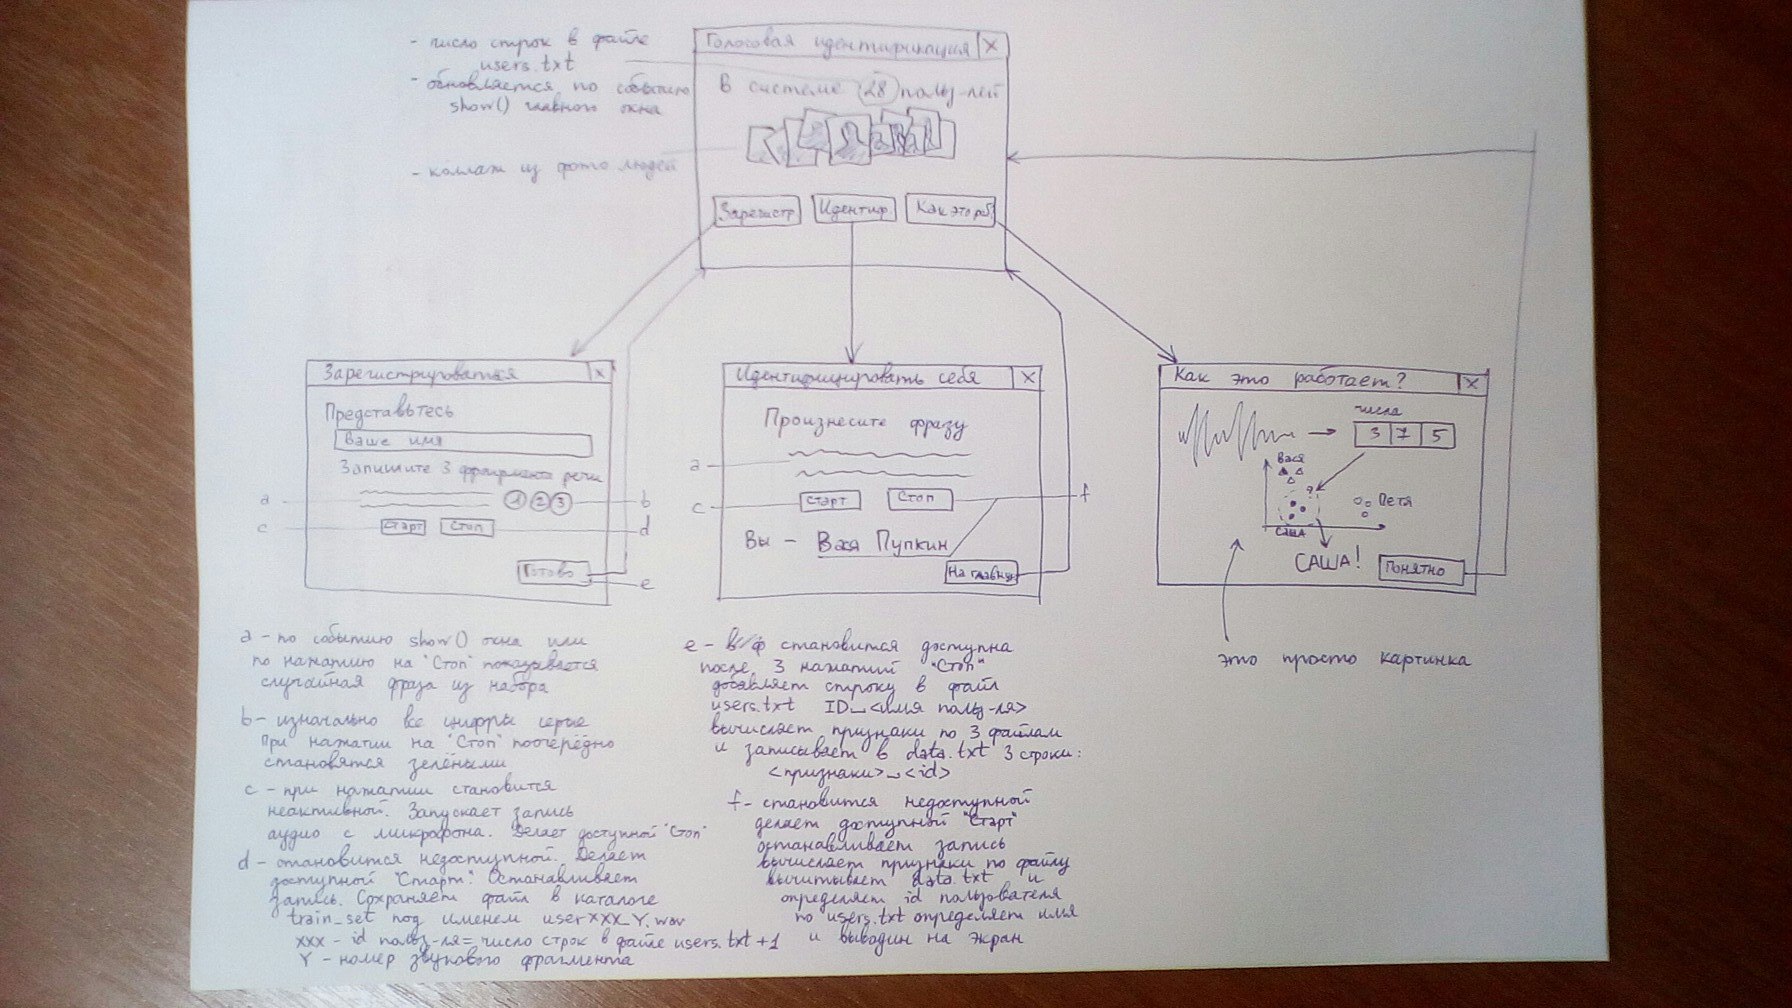 - число строк в файле
users.txt
- обновляется по событию
show() главного окна
- коллаж из фото людей
Голосовая идентификация X
В системе 28 польз-лей
Зарегистр
Идентиф
Как это раб
Зарегистрироваться x
Представьтесь
Ваше имя
Запишите 3 фрагмента речи
a
1 2 3
b
c
Старт
Стоп
d
Готово
e
Идентифицировать себя X
Произнесите фразу
a
c
Старт
Стоп
f
Вы - Вася Пупкин
На главную
Как это работает? X
числа
3 7 5
Вася
?
Петя
Саша
САША!
Понятно
это просто картинка
a - по событию show() окна или
по нажатию на "Стоп" показывается
случайная фраза из набора
b - изначально все цифры серые
При нажатии на "Стоп" поочерёдно
становятся зелёными
c - при нажатии становится
неактивной. Запускает запись
аудио с микрофона. Делает доступной "Стоп"
d - становится недоступной. Делает
доступной "Старт". Останавливает
запись. Сохраняет файл в каталоге
train_set под именем userXXX_Y.wav
XXX - id польз-ля = число строк в файле users.txt + 1
Y - номер звукового фрагмента
e - становится доступна
после 3 нажатий "Стоп"
добавляет строку в файл
users.txt ID_<имя польз-ля>
вычисляет признаки по 3 файлам
и записывает в data.txt 3 строки:
<признаки>_<id>
f - становится недоступной
делает доступной "Старт"
останавливает запись
вычисляет признаки по файлу
вычитывает data.txt и
определяет id пользователя
по users.txt определяет имя
и выводин на экран